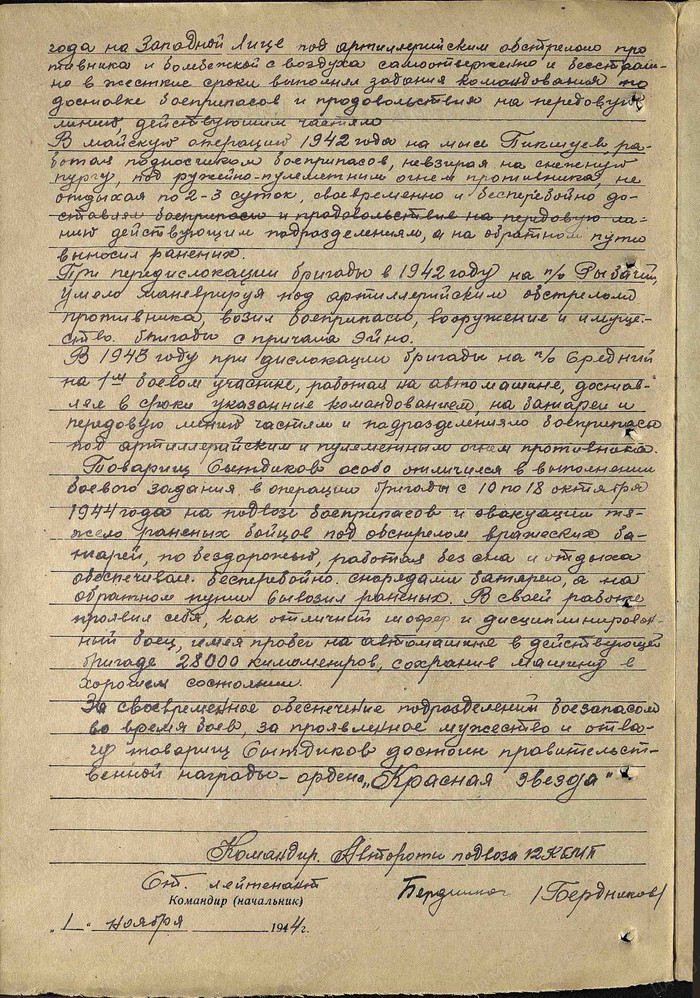 года на Западной Лице под артиллерийским обстрелом про
тивника и бомбежкой с воздуха самоотверженно и бесстраш-
но в жесткие сроки выполнял задания командования по
доставке боеприпасов и продовольствия на передовую
линию, действующим частям.
В майскую операцию 1942 года на мысе Пикшуев ра-
ботая подносчиком боеприпасов, невзирая на снежную
пургу, под ружейно-пулеметным огнем противника, не
отдыхая по 2-3 суток, своевременно и бесперебойно до-
ставлял боеприпасы и продовольствие на передовую ли-
нию действующим подразделениям, а на обратном пути
выносил раненых.
При передислокации бригады в 1942 году на п/о Рыбачий,
умело маневрируя под артиллерийским обстрелом
противника, возил боеприпасы, вооружение и имуще-
ство. бригады с причала Эйно.
В 1943 году при дислокации бригады на п/о Средний
на 1ом боевом участке, работая на автомашине, достав-
лял в сроки указанные командованием, на батареи и
передовую линию частям и подразделениям боеприпасы
под артиллерийским и пулеметным огнем противника.
Товарищ Сытдиков особо отличился в выполнении
боевого задания в операции бригады с 10 по 18 октября
1944 года на подвозе боеприпасов и эвакуации тя-
жело раненых бойцов под обстрелом вражеских ба-
тарей, по бездорожью, работая без сна и отдыха
обеспечивал. бесперебойно. снарядами батареи, а на
обратном пути вывозил раненых. В своей работе
проявил себя, как отличный шофер и дисциплинирован-
ный боец, имея пробег на автомашине в действующей
бригаде 28000 километров, сохранив машину в
хорошем состоянии.
За своевременное обеспечение подразделений боезапасом
во время боев, за проявленное мужество и отва-
гу товарищ Сытдиков достоин правительст-
венной награды - ордена „Красная звезда"
Командир. Автороты подвоза 12 КБМП
Ст. лейтенант
Командир (начальник)
Бердников /Бердников/
„1" ноября 1944 г.